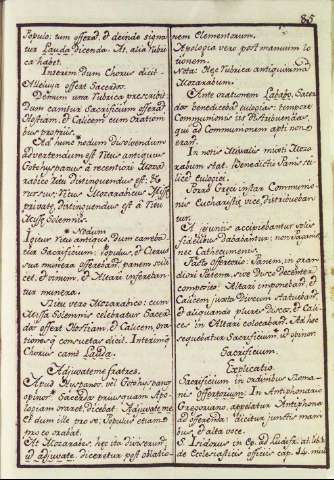 85
Populo: tum offerad, & deinde signa
tur Lauda Dicenda. At, alia Rubri
ca habet.
Interim Dum Chorus dicit
Alleluya offert Sacerdos.
Domum una Rubrica prescribit
Dum cantur Sacrificium offerad
Hostiam, & Calicem cum Oration
bus propriis.
nodum Dissolvendum
advertendum est Ritus antiquus
Gothyspanus à recentiori Mozara
rabico Ritu Distinguendus est: &
versus Ritus Mozarabicus Missæ
privatæ, Distinguendus est à Ritu
Missæ Solemnis.
Nodum
Igitur Ritu antiquo, Dum cantaba
tur Sacrificium, populus, & Chorus
sua munera offereban, panem scili
cet, & vinum, & Altari inferebant
tur munera.
Ritu vero Mozarabico: cum
Missa Solemnis celebratur Sacerdos
offert Hostiam, & Calicem, ora
tionesq consuetas dicit. Interim
Chorus cant Lauda.
Adjuvate me fratres.
Apud Hispanos vel Gothyspanos
opinor Sacerdos priusquam Apo
logiam oraret, dicebat Adjuvate me
& dum ille pro se, Populus etiam
pro eo orabat.
At Mozarabes, hec ita Diviserunt,
ad adjuvate, diceretur post oblatio
nem Elementorum.
Apologia vero post manuum lo
tionem.
Nota: Hec Rubrica antiquior
Mozarabum.
Ante orationem Lababo, Sacer
dos benedicebat eulogias: tempore
Communionis iis distribuendas
qui ad Communionem apti non
erant.
In notis Missalis mixti Moza
rabum stat. Benedictio Panis sci
licet eulogici.
Porro Greci instar Communio
nis Eucharistiæ vice, distribueban
tur.
A jejunis accipiebantur solis
fidelibus Dabantur: non
ne Cathecumenis.
Facto offertorio: Panem, in gran
diori Patena, sive Disco Decenter
composito Altari imponeban, &
Calicem juxta Discum statueban,
& aliquando plures Discos, & Cali
ces in Altari colocaban. Ad hec
sequebatur Sacrificium, ut opinor
Sacrificium.
Explicatio.
Sacrificium in ordinibus Roma
nis Offertorium: In Antiphonario
Gregoriano, appelatur Antiphona
ad offerenda: dicitur junctis mani
bus, & alta voce.
S. Isidorus in Ep. ad Ludefr. et lib. 1.
de Ecclesiasticis officiis cap. 14.